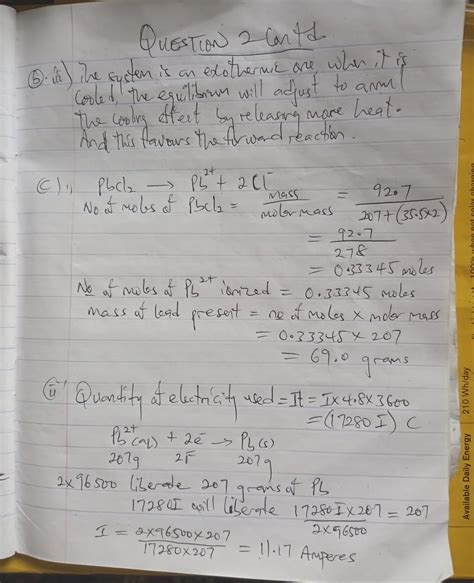 QUESTION 2 Contd
(b). iii) The system is an exothermic one when it is
cooled, the equilibrium will adjust to annul
the cooling effect by releasing more heat.
And this favours the forward reaction.
(c) i, PbCl2 → Pb²⁺ + 2Cl⁻
No of moles of PbCl2 = mass / molar mass = 92.7 / 207+(35.5x2)
= 92.7 / 278
= 0.33345 moles
No of moles of Pb²⁺ ionized = 0.33345 moles
mass of lead present = no of moles x molar mass
= 0.33345 x 207
= 69.0 grams
(ii) Quantity of electricity used = It = I x 4.8 x 3600
= (17280 I) C
Pb²⁺(aq) + 2e⁻ → Pb(s)
207g 2F 207g
2x96500 liberate 207 grams of Pb
17280I will liberate 17280 I x 207 / 2x96500 = 207
I = 2x96500x207 / 17280x207 = 11.17 Amperes
Available Daily Energy 210 Wh/day